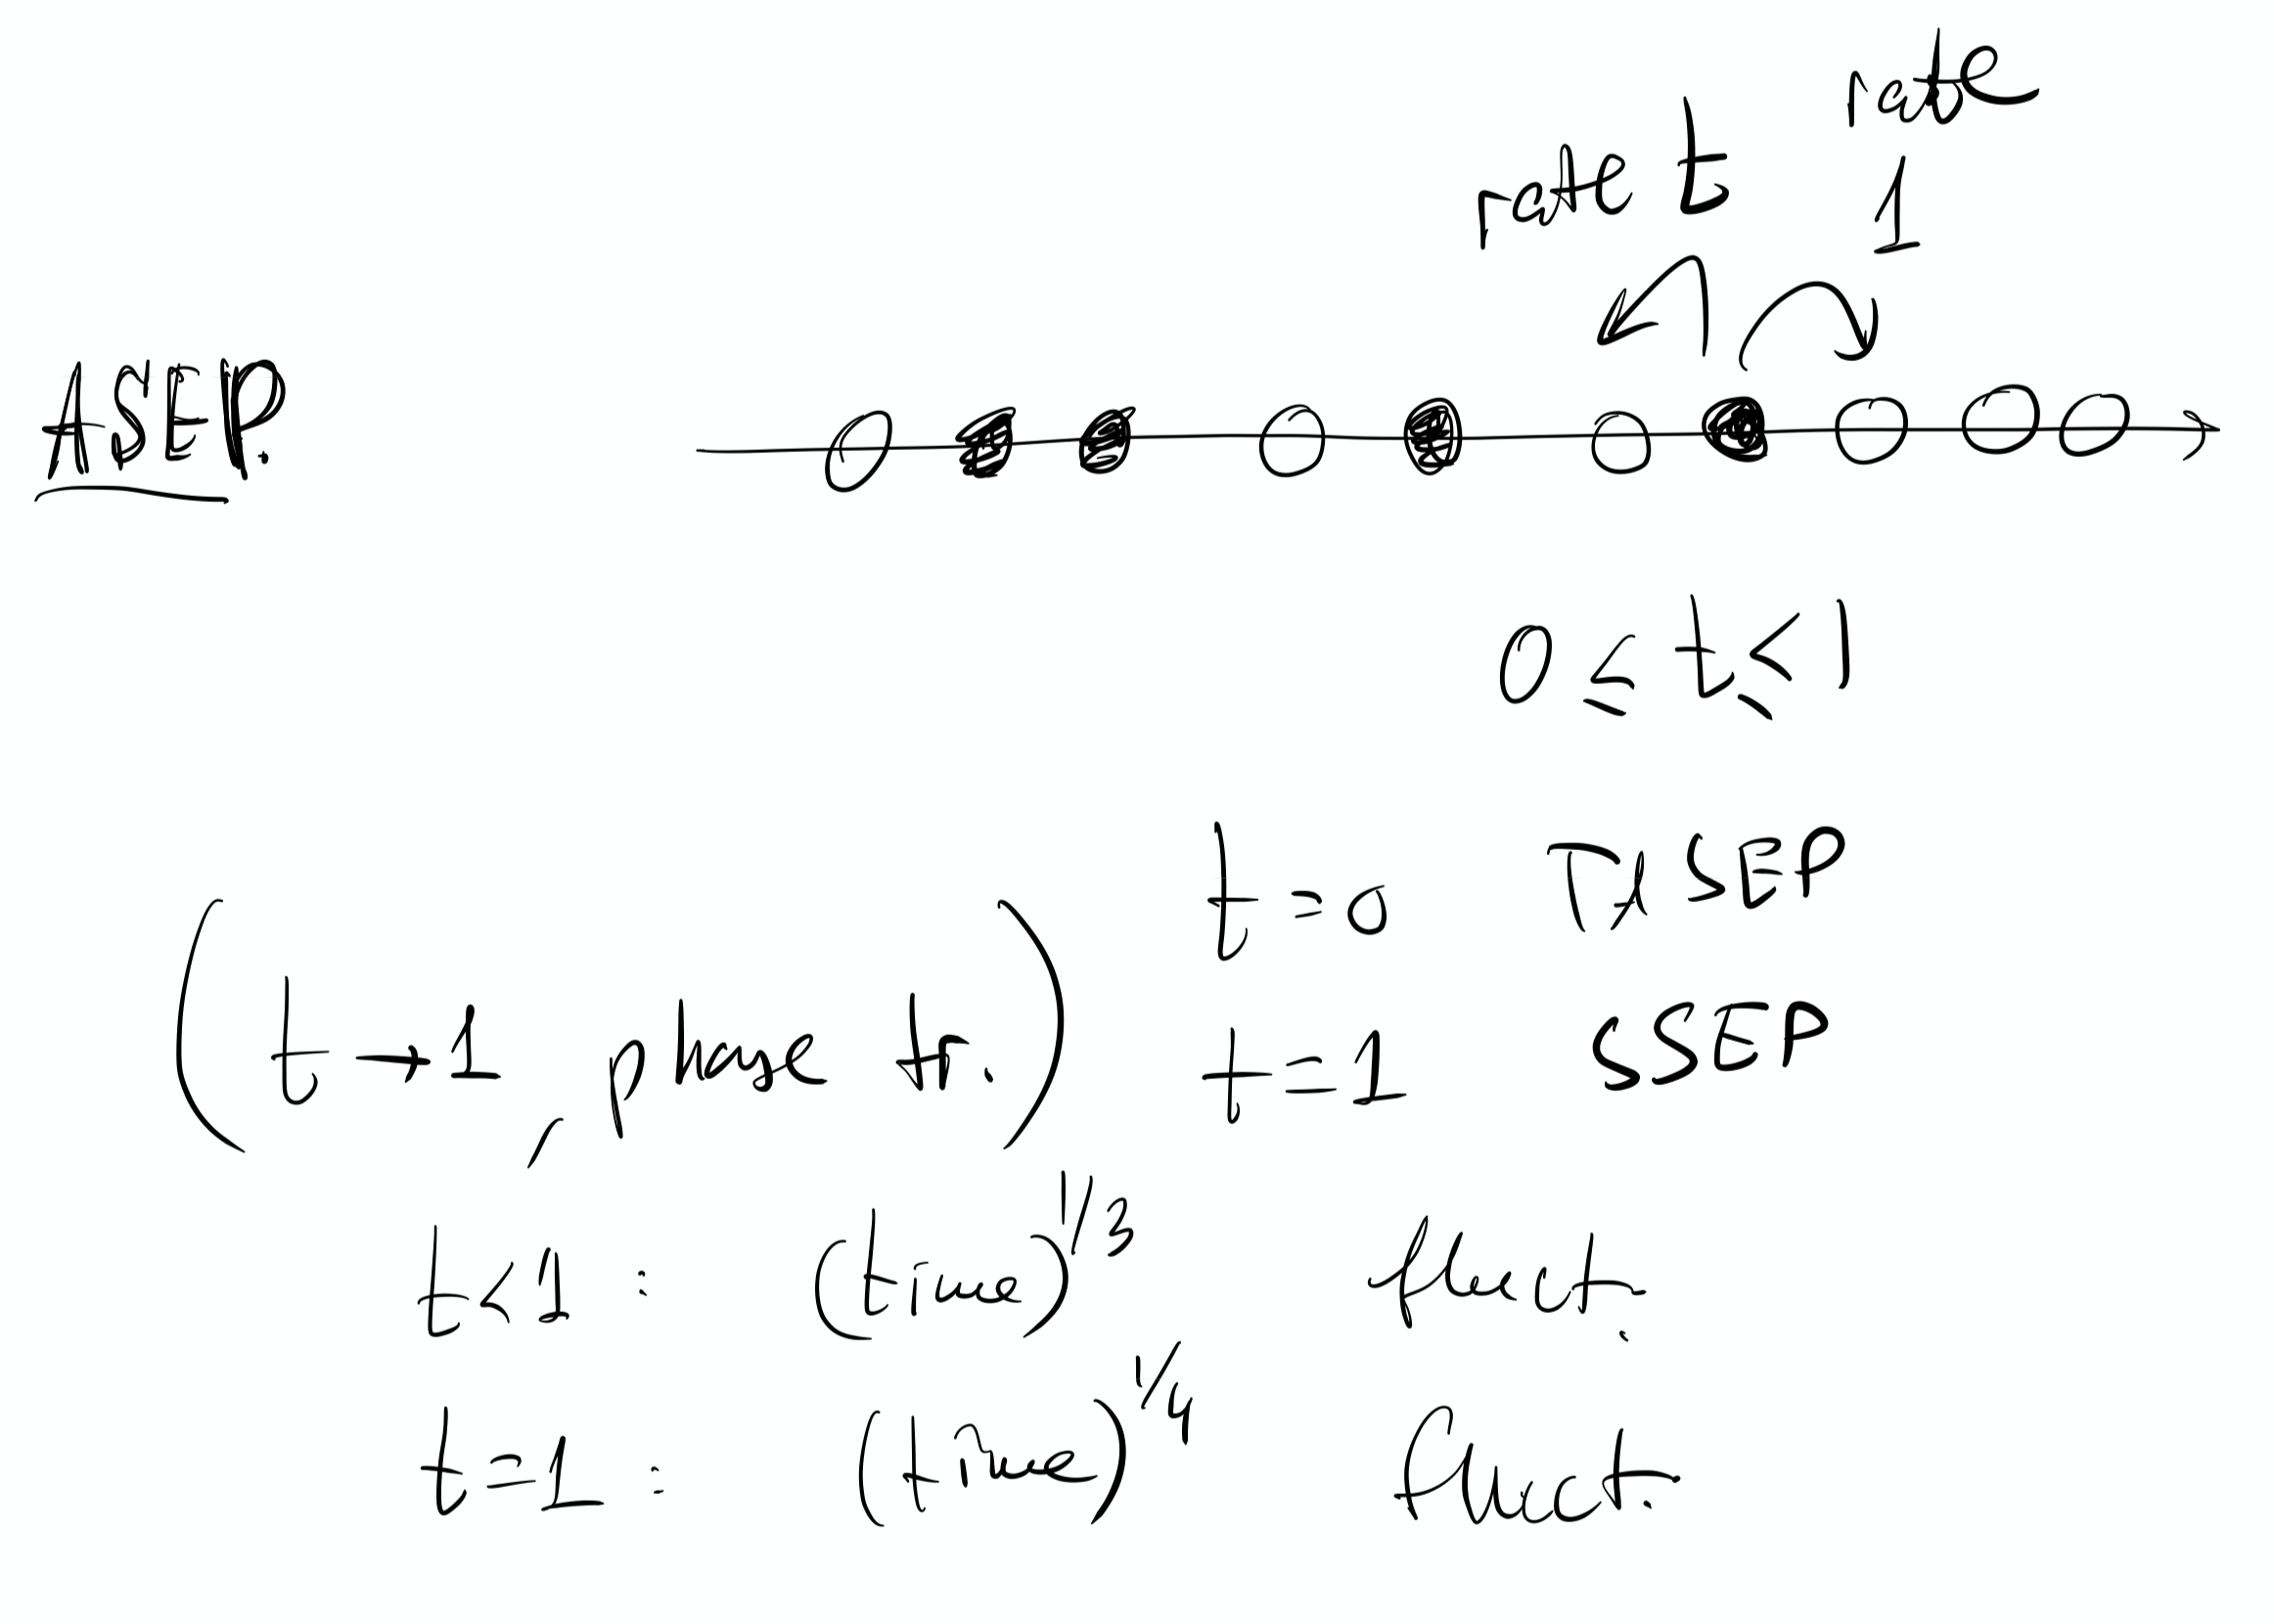 rate t rate 1
ASEP.
0 ≤ t ≤ 1
t = 0 TASEP
(t → 1, phase tr.) t = 1 SSEP
t < 1 : (time)^1/3 fluct.
t = 1 : (time)^1/4 fluct.